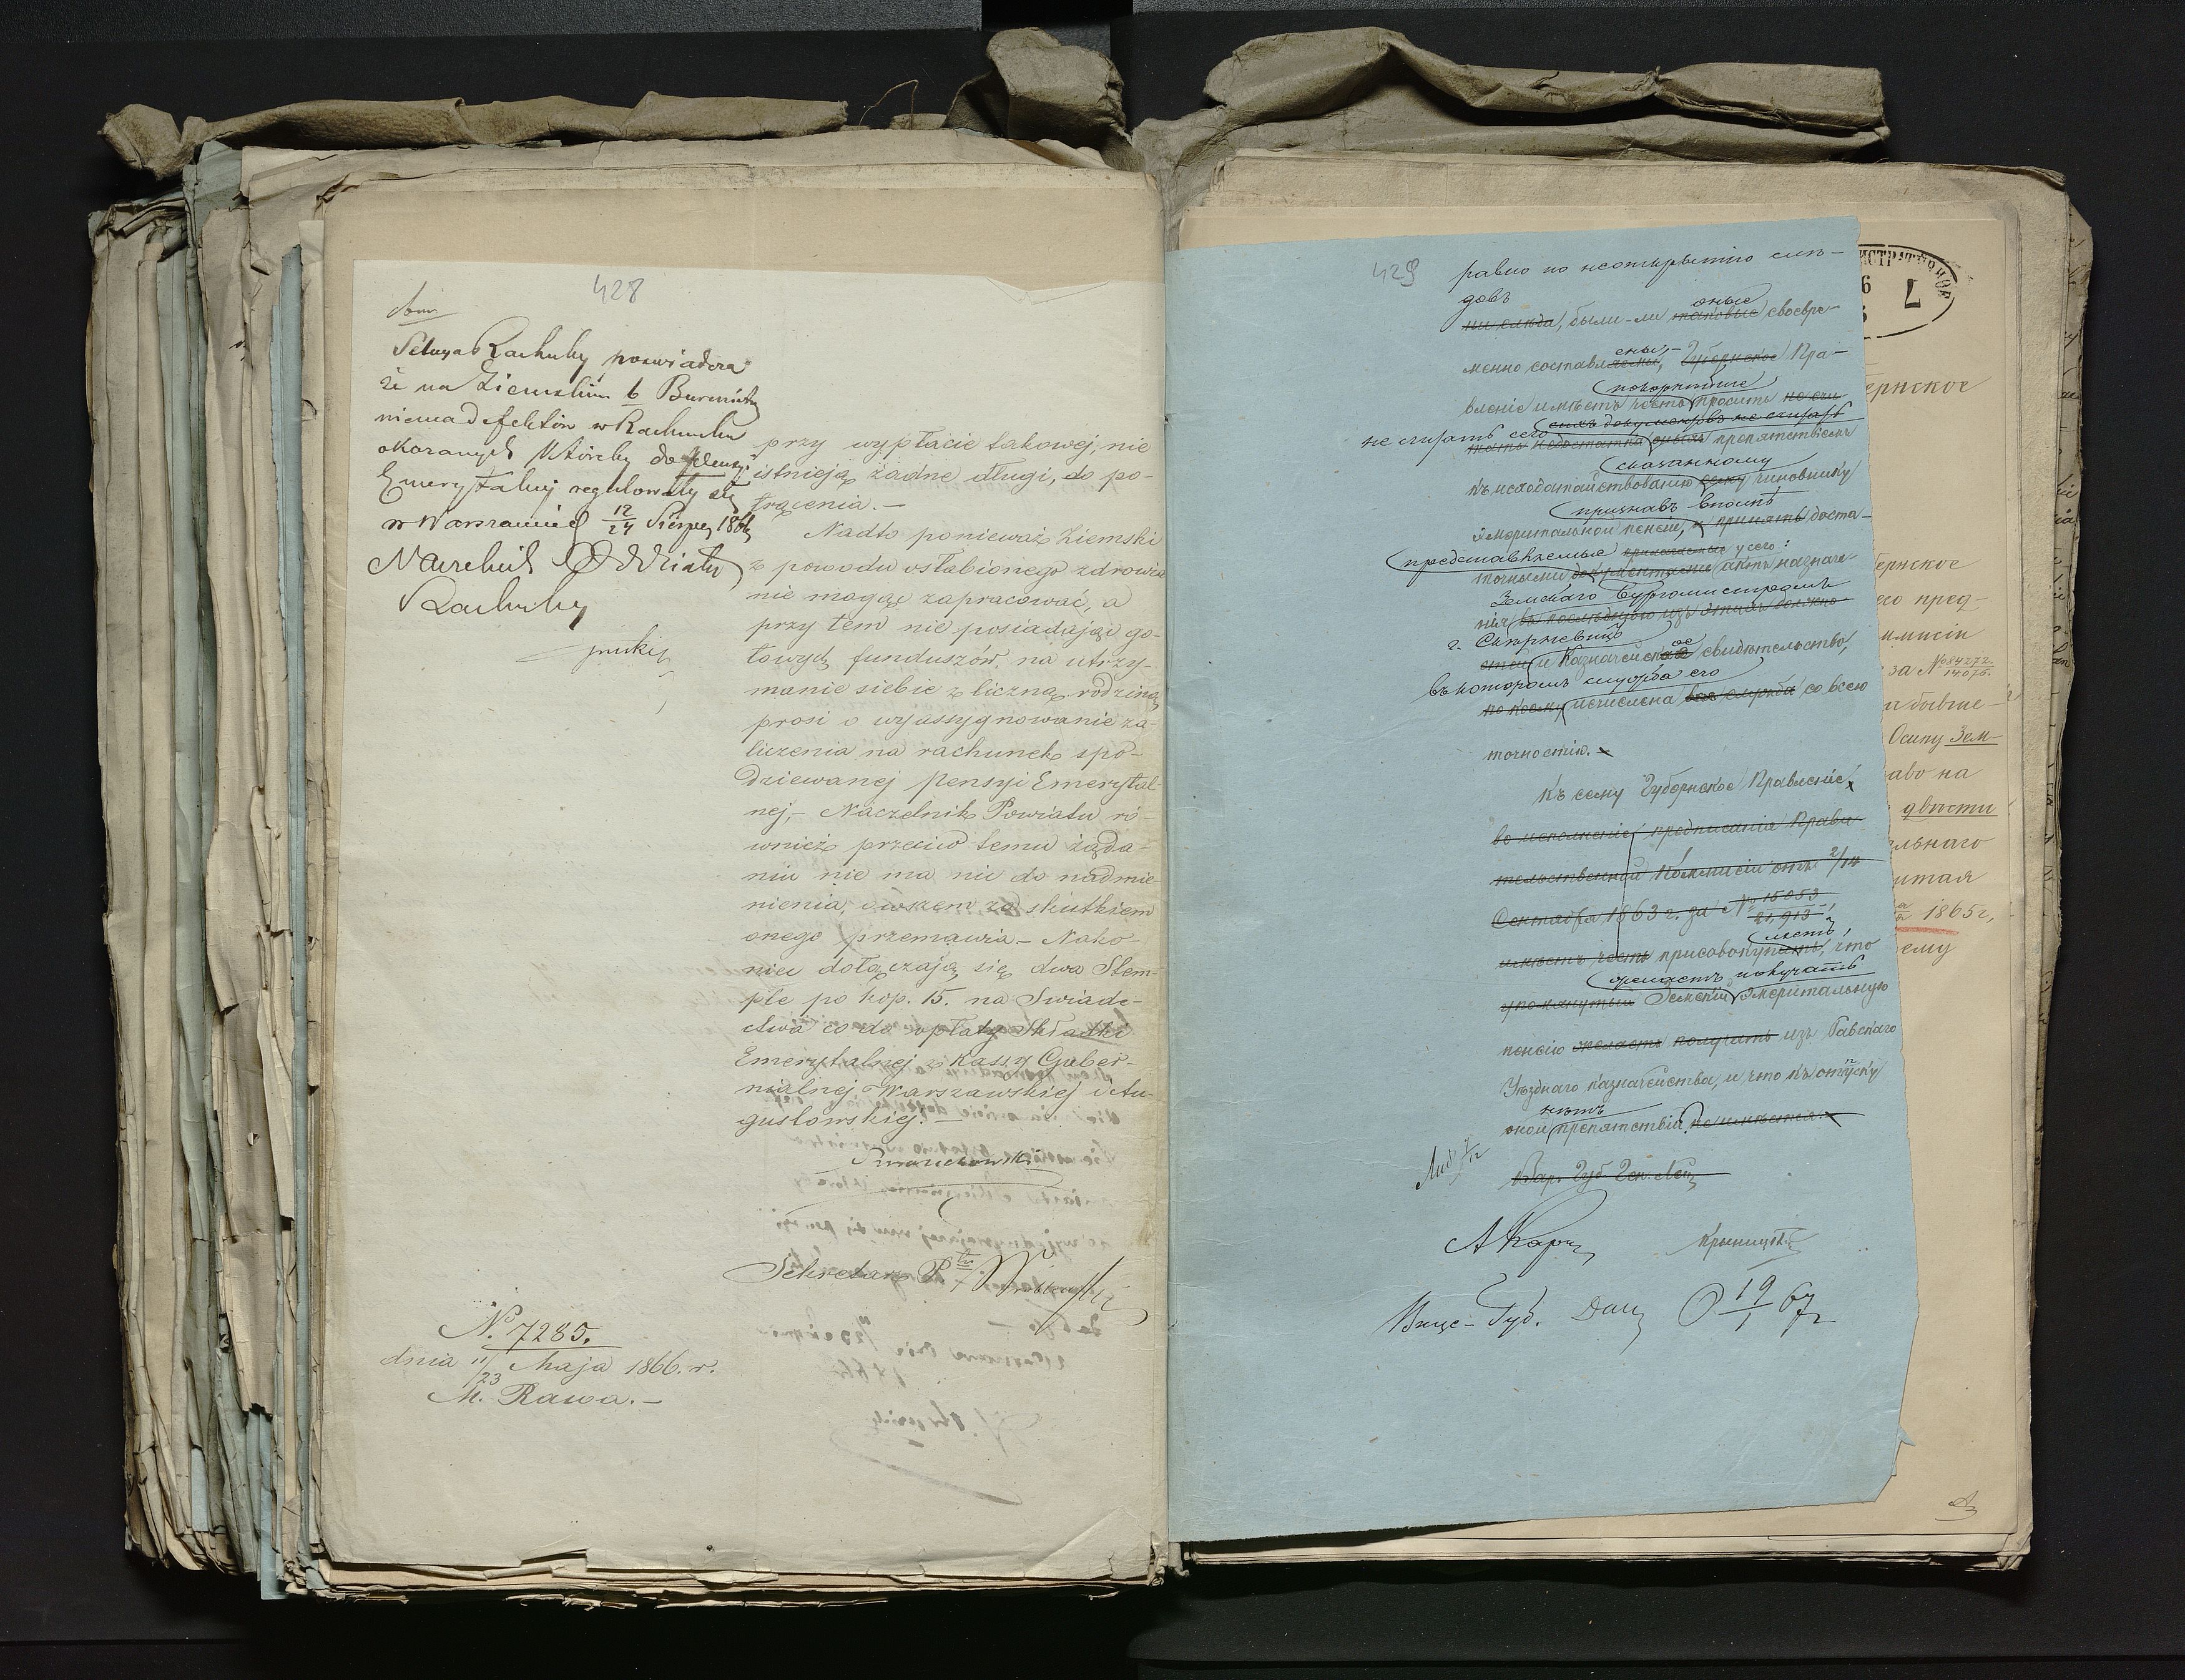 428
Sekcya Rachuby poświadcza
że na Ziemskim b Burmistrzu
niema defektów w Rachunku
okazanych któreby do Pensyi
Emerytalnej regulowały się
w Warszawie 12/24 Sierp. 1866
Naczelnik Oddziału
Rachuby
przy wypłacie takowej, nie
istnieją żadne długi, do po-
trącenia.-
Nadto ponieważ Ziemski
z powodu osłabionego zdrowia
nie mogąc zapracować, a
przy tem nie posiadając go-
towych funduszów, na utrzy-
manie siebie z liczną rodziną
prosi o wyassygnowanie za-
liczenia na rachunek spo-
dziewanej pensyi Emerytal-
nej,- Naczelnik Powiatu ró-
wnież przeciw temu żąda-
niu nie ma nic do nadmie-
nienia, owszem za skutkiem
onego przemawia - Nako-
niec dołączają się dwa Stem-
ple po kop. 15. na Swiade-
ctwa co do wpłaty Składki
Emerytalnej z Kassy Guber-
nialnej Warszawskiej i Au-
gustowskiej.-
Sekretarz Ptu
No 7285.
dnia 11/23 Maja 1866. r.
M. Rawa.-
429
равно по неоткрытію слѣ-
довъ
оныя
ни слѣда, были-ли таковые своевре-
ены,
менно составлены, Губернское Пра-
покорнѣйше
вленіе имѣетъ честь просить
сихъ документовъ не считать
не считать сего
недостатка препятствіемъ
сказанному
къ исходатайствованію сему чиновнику
признавъ вполнѣ
эмеритальной пенсіи, и принять доста-
представляемые прилагаемые у сего:
точными документами актъ назначе-
Земскаго Бургомистромъ
нія
г. Скерневицъ
и Казначейское свидѣтельство,
въ которомъ служба его
по коему исчислена вся служба со всею
точностію.-
Къ сему Губернское Правленіе,
во исполненіе предписанія Прави-
тельственной Коммисіи отъ 2/14
Сентября 1863 г. за № 15053/21,913,
имѣетъ честь присовокупить, что
желаетъ получать
упомянутый Земскій эмеритальную
пенсію желаетъ получать изъ Равскаго
Уѣзднаго Казначейства, и что къ отпуску
нѣтъ
оной препятствій не имѣется.
Вице-Губ.
19/1 67
ИСТРАТИВНОЕ
6
7
ернское
ернское
его пред-
ммисіи
за № 84272/14075.
и бывше-
Осипу Зем-
аво на
двѣсти
льнаго
итая
1865 г,
ему